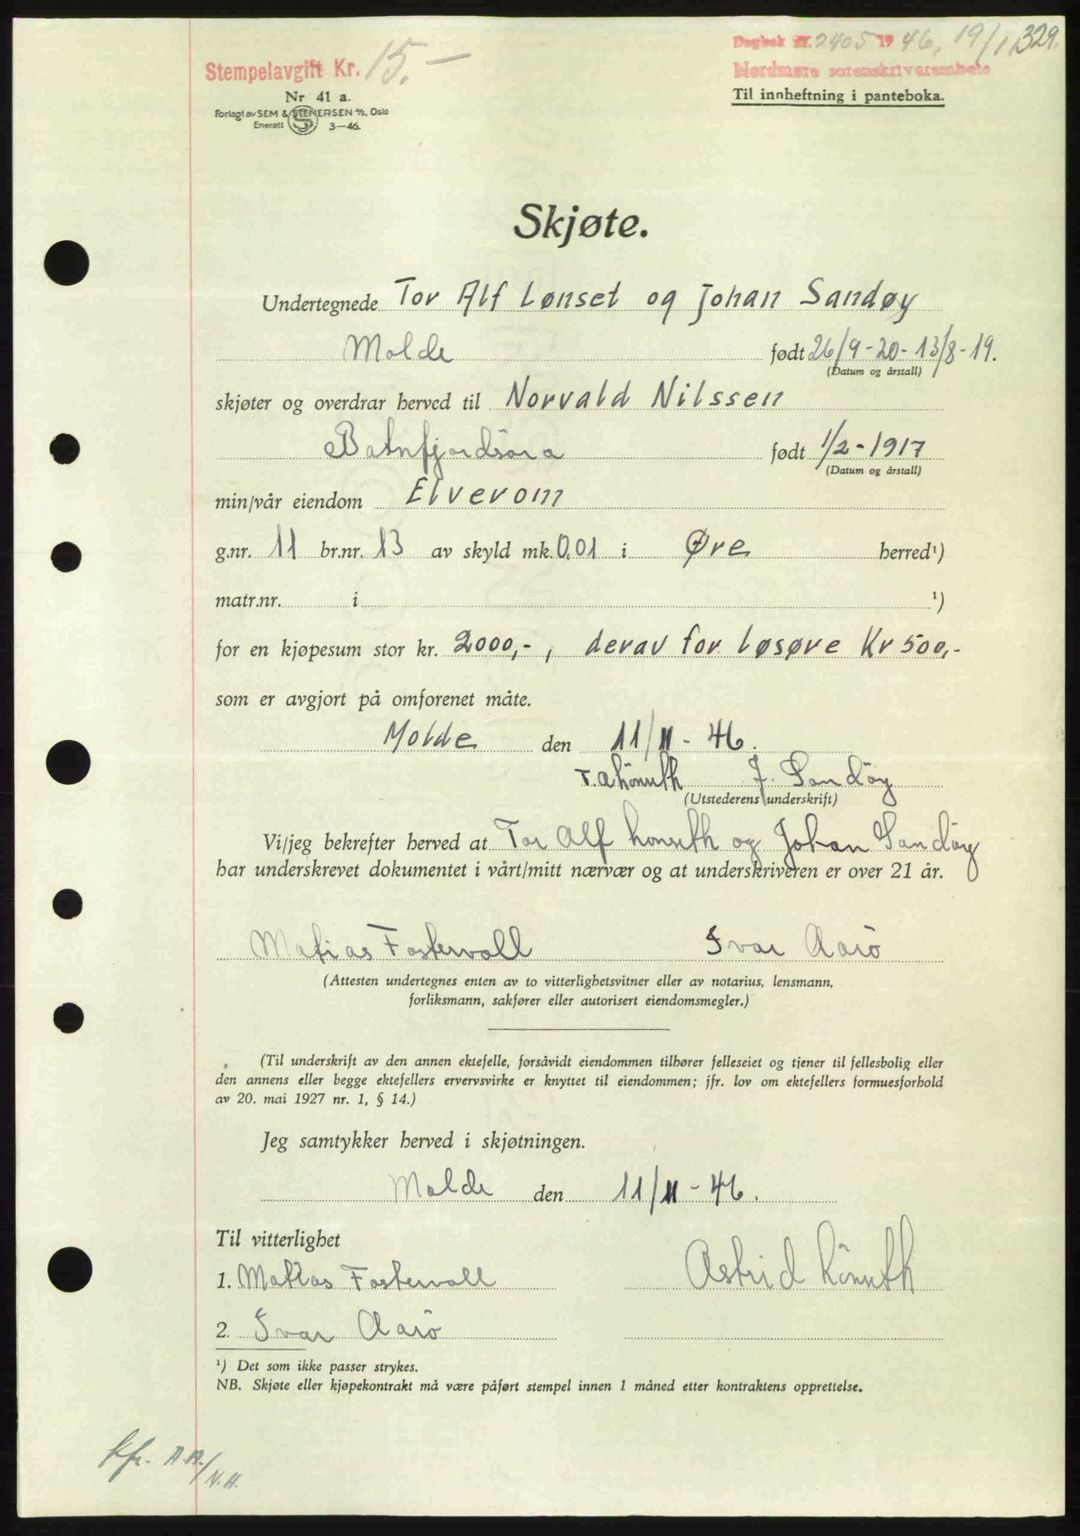 Stempelavgift Kr. 15.–
Dagbok nr. 2405 1946, 19/11 329.
Nordmøre sorenskriverembete
Til innheftning i panteboka.
Nr 41 a.
Forlagt av SEM & STENERSEN A/S, Oslo
Enerett S 3—46.
Skjøte.
Undertegnede Tor Alf Lønset og Johan Sandøy
Molde født 26/9-20- 13/8-19.
(Datum og årstall)
skjøter og overdrar herved til Norvald Nilssen
Batnfjordsøra født 1/2-1917
(Datum og årstall)
min/vår eiendom Elverom
g.nr. 11 br.nr. 13 av skyld mk. 0,01 i Øre herred¹)
matr.nr. i ¹)
for en kjøpesum stor kr. 2000,-, derav for løsøre Kr 500,-
som er avgjort på omforenet måte.
Molde den 11/11-46.
T. A Lönseth J. Sandöy
(Utstederens underskrift)
Vi/jeg bekrefter herved at Tor Alf Lonseth og Johan Sandöy
har underskrevet dokumentet i vårt/mitt nærvær og at underskriveren er over 21 år.
Matias Fostervoll Ivar Aarö
(Attesten undertegnes enten av to vitterlighetsvitner eller av notarius, lensmann,
forliksmann, sakfører eller autorisert eiendomsmegler.)
(Til underskrift av den annen ektefelle, forsåvidt eiendommen tilhører felleseiet og tjener til fellesbolig eller
den annens eller begge ektefellers ervervsvirke er knyttet til eiendommen; jfr. lov om ektefellers formuesforhold
av 20. mai 1927 nr. 1, § 14.)
Jeg samtykker herved i skjøtningen.
Molde den 11/11-46.
Til vitterlighet
1. Matias Fostervoll Astrid Lönseth
2. Ivar Aarö
¹) Det som ikke passer strykes.
NB. Skjøte eller kjøpekontrakt må være påført stempel innen 1 måned etter kontraktens opprettelse.
kfr. A.A./N.H.